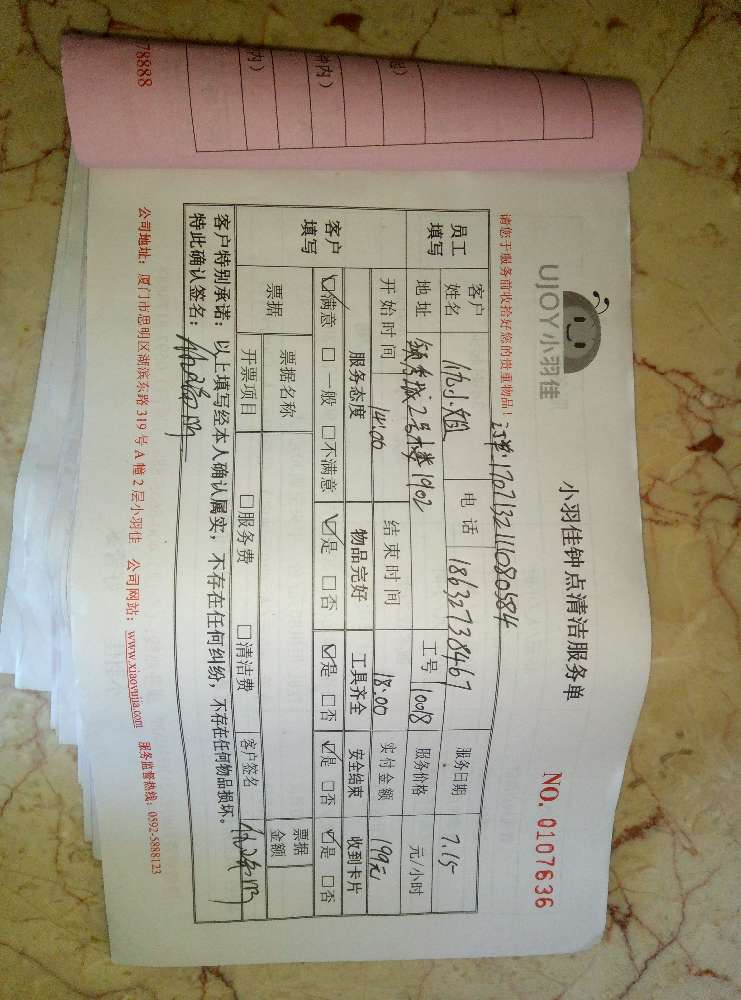 UJOY小羽佳
小羽佳钟点清洁服务单
NO. 0107636
请您于服务前收拾好您的贵重物品!
订单:1707132111080584
员工填写
客户姓名 小姐 电话 18632738467 服务日期 7.15
地址 2号楼1902 工号 10018 服务价格 元/小时
开始时间 14:00 结束时间 18:00 实付金额 199元
客户填写
服务态度 物品完好 工具齐全 安全结束 收到卡片
☑满意 □一般 □不满意 ☑是 □否 ☑是 □否 ☑是 □否 ☑是 □否
票据 票据名称 票据金额
开票项目 □服务费 □清洁费 客户签名
客户特别承诺:以上填写经本人确认属实,不存在任何纠纷,不存在任何物品损坏。
特此确认签名:
公司地址:厦门市思明区湖滨东路319号A幢2层小羽佳 公司网站:www.xiaoyujia.com 服务监督热线:0592-5888123
78888
内)
钟内)